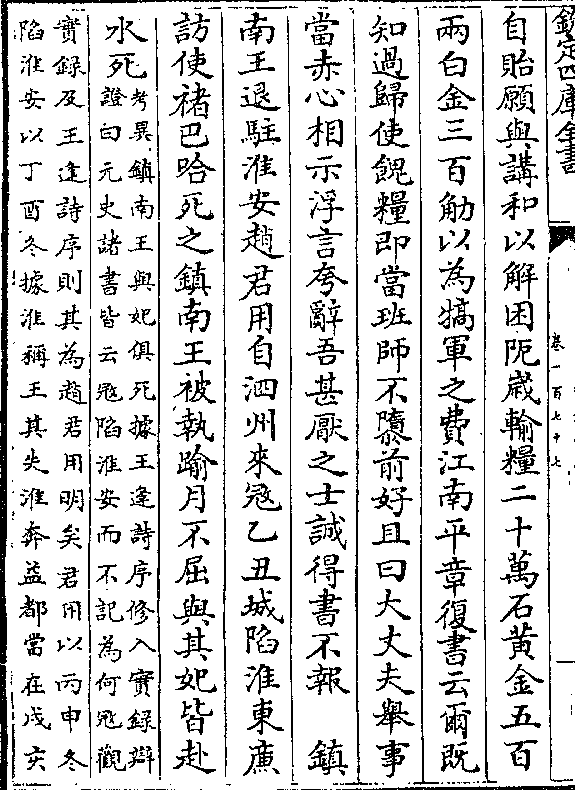 欽定四庫全書
卷一百七十七
自貽願與講和以解困阨歲輸糧二十萬石黃金五百
兩白金三百觔以為犒軍之費江南平章復書云爾既
知過歸使餽糧即當班師不隳前好且曰大丈夫舉事
當赤心相示浮言夸辭吾甚厭之士誠得書不報　鎮
南王退駐淮安趙君用自泗州來冦乙丑城陷淮東亷
訪使禇巴哈死之鎮南王被執踰月不屈與其妃皆赴
水死考異鎮南王與妃俱死據王逢詩序修入實録辯
證曰元史諸書皆云冦陷淮安而不記為何冦觀
實録及王逢詩序則其為趙君用明矣君用以丙申冬
陷淮安以丁酉冬據淮稱王其失淮奔益都當在戊亥